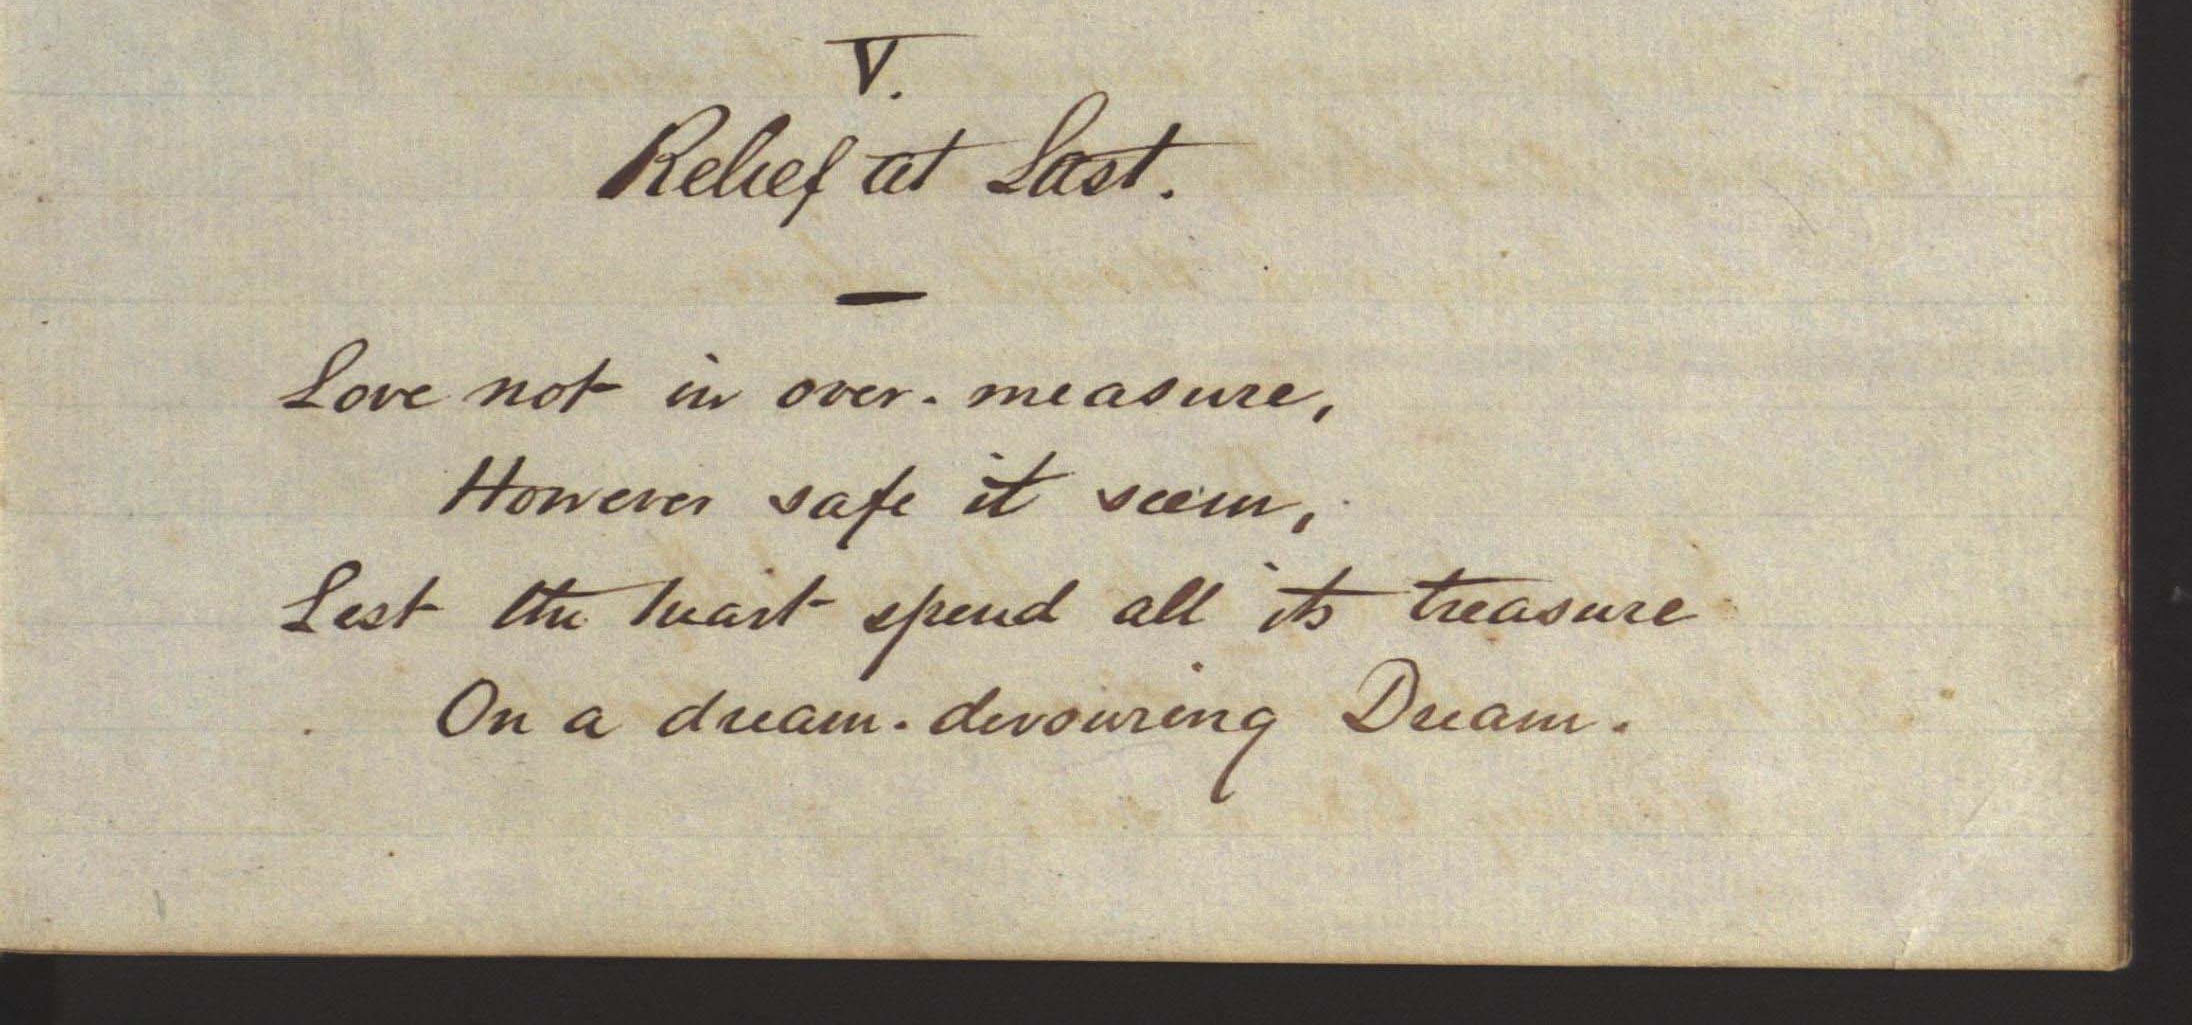 V.
Relief at Last.
—
Love not in over-measure,
However safe it seem,
Lest the heart spend all its treasure
On a dream-devouring Dream.